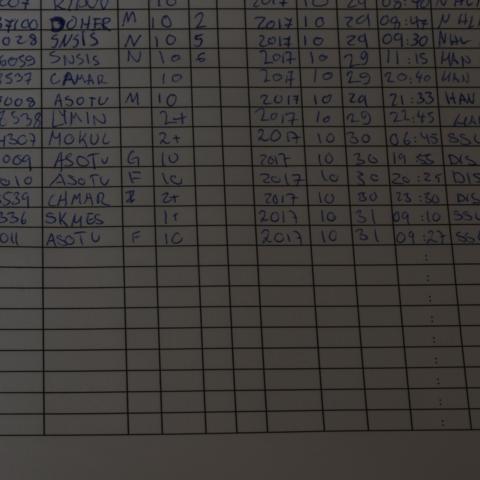 2017 10 29
37100 DOHER M 10 2 2017 10 29 09:47
028 SNSIS N 10 5 2017 10 29 09:30 NHL
6059 SNSIS N 10 6 2017 10 29 11:15 HAN
537 CAMAR 10 2017 10 29 20:40 HAN
008 ASOTU M 10 2017 10 29 21:33 HAN
8538 LYMIN 2+ 2017 10 29 22:45
4307 MOKUL 2+ 2017 10 30 06:45 SSL
009 ASOTU G 10 2017 10 30 19:55 DIS
010 ASOTU F 10 2017 10 30 20:25 DIS
539 CAMAR 2+ 2017 10 30 23:30 DIS
336 SKMES 1+ 2017 10 31 09:10 SSL
011 ASOTU F 10 2017 10 31 09:27 SSL